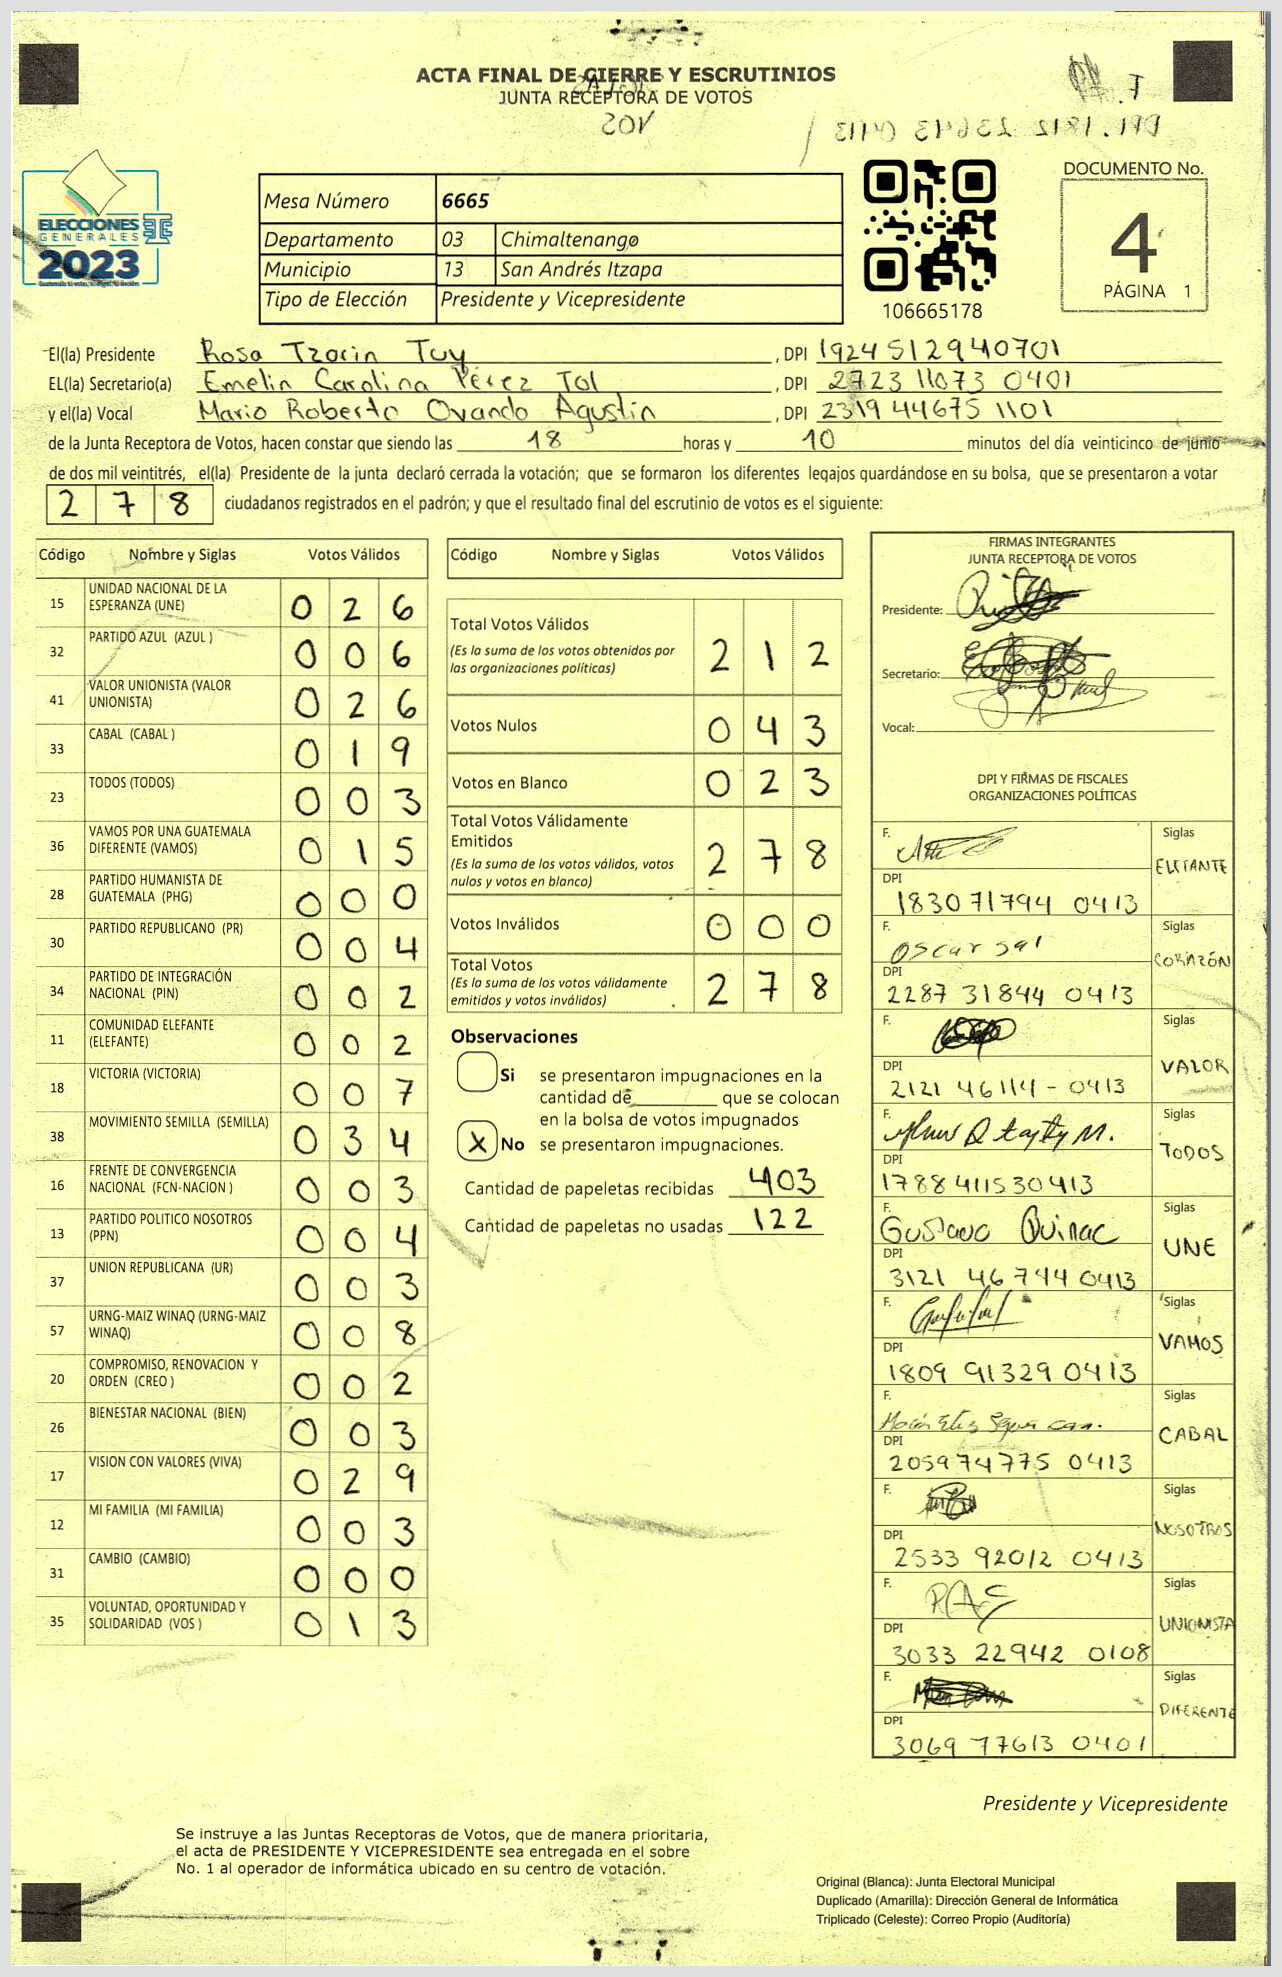 ACTA FINAL DE CIERRE Y ESCRUTINIOS
JUNTA RECEPTORA DE VOTOS
VOS
ELECCIONES
GENERALES
2023
Mesa Número 6665
Departamento 03 Chimaltenango
Municipio 13 San Andrés Itzapa
Tipo de Elección Presidente y Vicepresidente
106665178
DOCUMENTO No.
4
PÁGINA 1
El(la) Presidente Rosa Tzorin Tuy, DPI 1924512940701
EL(la) Secretario(a) Emelin Carolina Pérez Tol, DPI 2723 11073 0401
y el(la) Vocal Mario Roberto Ovando Agustin, DPI 2319 44675 1101
de la Junta Receptora de Votos, hacen constar que siendo las 18 horas y 10 minutos del día veinticinco de junio
de dos mil veintitrés, el(la) Presidente de la junta declaró cerrada la votación; que se formaron los diferentes legajos quardándose en su bolsa, que se presentaron a votar
278 ciudadanos registrados en el padrón; y que el resultado final del escrutinio de votos es el siguiente:
Código Nombre y Siglas Votos Válidos
15 UNIDAD NACIONAL DE LA ESPERANZA (UNE) 0 2 6
32 PARTIDO AZUL (AZUL ) 0 0 6
41 VALOR UNIONISTA (VALOR UNIONISTA) 0 2 6
33 CABAL (CABAL ) 0 1 9
23 TODOS (TODOS) 0 0 3
36 VAMOS POR UNA GUATEMALA DIFERENTE (VAMOS) 0 1 5
28 PARTIDO HUMANISTA DE GUATEMALA (PHG) 0 0 0
30 PARTIDO REPUBLICANO (PR) 0 0 4
34 PARTIDO DE INTEGRACIÓN NACIONAL (PIN) 0 0 2
11 COMUNIDAD ELEFANTE (ELEFANTE) 0 0 2
18 VICTORIA (VICTORIA) 0 0 7
38 MOVIMIENTO SEMILLA (SEMILLA) 0 3 4
16 FRENTE DE CONVERGENCIA NACIONAL (FCN-NACION ) 0 0 3
13 PARTIDO POLITICO NOSOTROS (PPN) 0 0 4
37 UNION REPUBLICANA (UR) 0 0 3
57 URNG-MAIZ WINAQ (URNG-MAIZ WINAQ) 0 0 8
20 COMPROMISO, RENOVACION Y ORDEN (CREO ) 0 0 2
26 BIENESTAR NACIONAL (BIEN) 0 0 3
17 VISION CON VALORES (VIVA) 0 2 9
12 MI FAMILIA (MI FAMILIA) 0 0 3
31 CAMBIO (CAMBIO) 0 0 0
35 VOLUNTAD, OPORTUNIDAD Y SOLIDARIDAD (VOS ) 0 1 3
Código Nombre y Siglas Votos Válidos
Total Votos Válidos 2 1 2
(Es la suma de los votos obtenidos por
las organizaciones políticas)
Votos Nulos 0 4 3
Votos en Blanco 0 2 3
Total Votos Válidamente
Emitidos 2 7 8
(Es la suma de los votos válidos, votos
nulos y votos en blanco)
Votos Inválidos 0 0 0
Total Votos 2 7 8
(Es la suma de los votos válidamente
emitidos y votos inválidos)
Observaciones
Si se presentaron impugnaciones en la
cantidad de que se colocan
en la bolsa de votos impugnados
X No se presentaron impugnaciones.
Cantidad de papeletas recibidas 403
Cantidad de papeletas no usadas 122
FIRMAS INTEGRANTES
JUNTA RECEPTORA DE VOTOS
Presidente:
Secretario:
Vocal:
DPI Y FIRMAS DE FISCALES
ORGANIZACIONES POLÍTICAS
F. Siglas
ELEFANTE
DPI
1830 71794 0413
F. Oscar Sal Siglas
CORAZÓN
DPI
2287 31844 0413
F. Siglas
VALOR
DPI
2121 46114 - 0413
F. Siglas
TODOS
DPI
1788 41153 0413
F. Gustavo Quinac Siglas
UNE
DPI
3121 46744 0413
F. Siglas
VAMOS
DPI
1809 91329 0413
F. Siglas
CABAL
DPI
2059 74775 0413
F. Siglas
NOSOTROS
DPI
2533 92012 0413
F. Siglas
UNIONISTA
DPI
3033 22942 0108
F. Siglas
DIFERENTE
DPI
3069 77613 0401
Presidente y Vicepresidente
Se instruye a las Juntas Receptoras de Votos, que de manera prioritaria,
el acta de PRESIDENTE Y VICEPRESIDENTE sea entregada en el sobre
No. 1 al operador de informática ubicado en su centro de votación.
Original (Blanca): Junta Electoral Municipal
Duplicado (Amarilla): Dirección General de Informática
Triplicado (Celeste): Correo Propio (Auditoría)